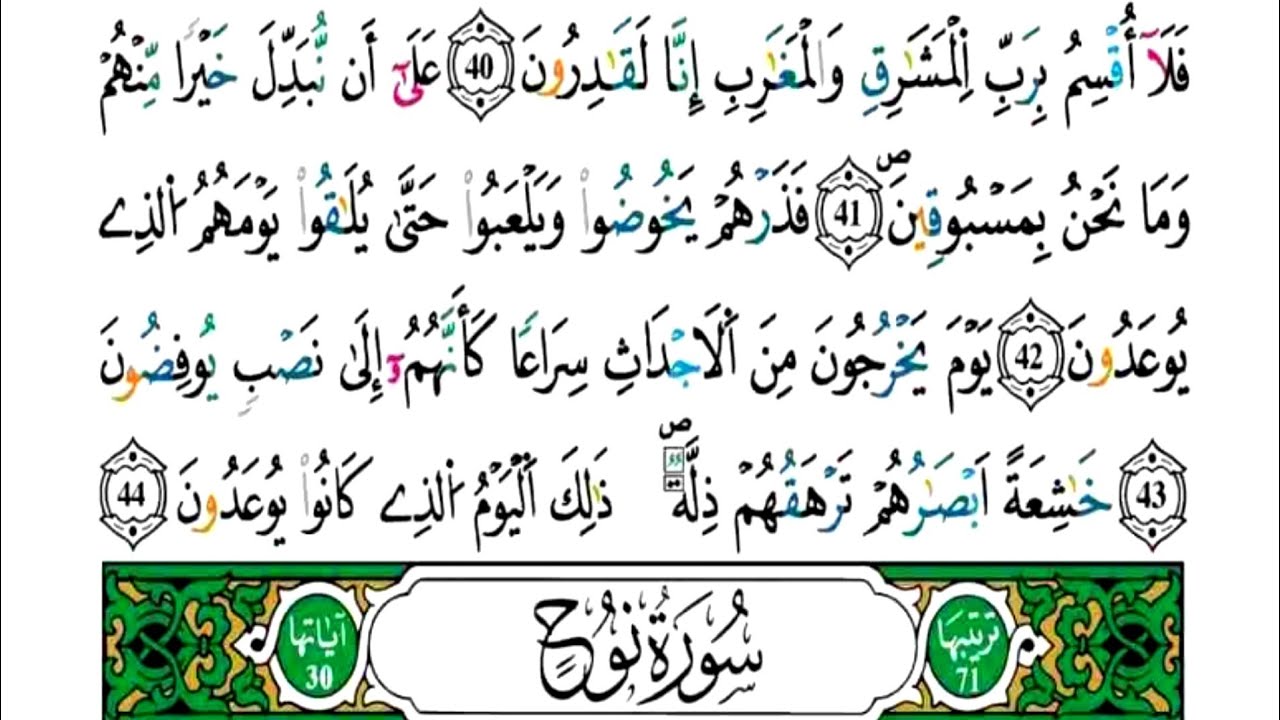 فَلَآ أُقْسِمُ بِرَبِّ اِ۬لْمَشَٰرِقِ وَالْمَغَٰرِبِ إِنَّا لَقَٰدِرُونَ 40 عَلَيٰٓ أَن نُّبَدِّلَ خَيْراٗ مِّنْهُمْ
وَمَا نَحْنُ بِمَسْبُوقِينَۖ 41 فَذَرْهُمْ يَخُوضُواْ وَيَلْعَبُواْ حَتَّىٰ يُلَٰقُواْ يَوْمَهُمُ اُ۬لذِے
يُوعَدُونَ 42 يَوْمَ يَخْرُجُونَ مِنَ اَ۬لَاجْدَاثِ سِرَاعاٗ كَأَنَّهُمُۥٓ إِلَىٰ نَصْبٖ يُوفِضُونَ
43 خَٰشِعَةً اَبْصَٰرُهُمْ تَرْهَقُهُمْ ذِلَّةٞۖ ذَٰلِكَ اَ۬لْيَوْمُ اُ۬لذِے كَانُواْ يُوعَدُونَ 44
ترتيبها 71 سُورَةُ نُوحٍ آياتها 30